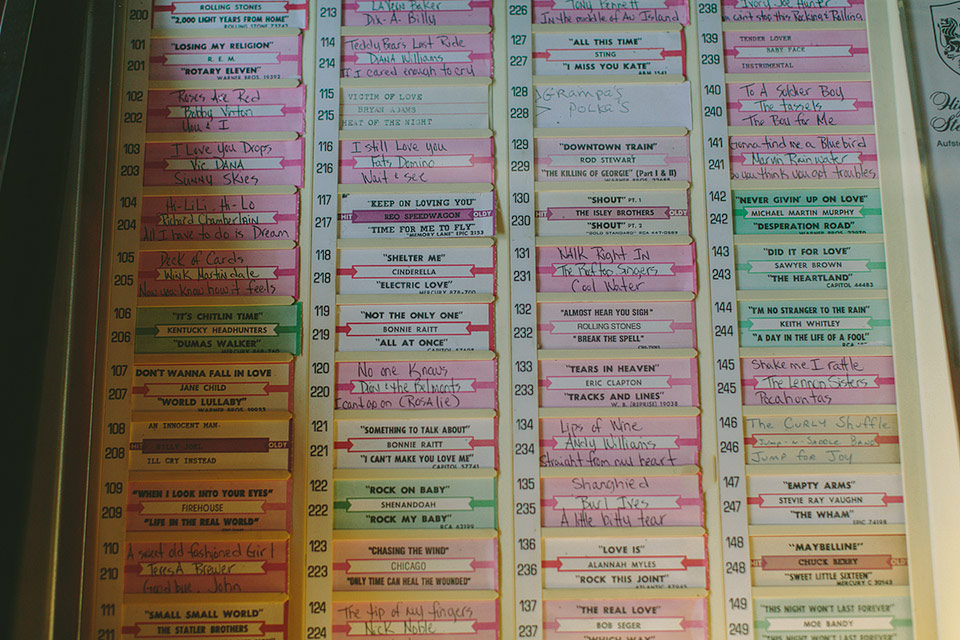 200
ROLLING STONES
"2,000 LIGHT YEARS FROM HOME"
101
201
"LOSING MY RELIGION"
R. E. M.
"ROTARY ELEVEN"
WARNER BROS. 19392
102
202
Roses Are Red
Bobby Vinton
You & I
103
203
I Love You Drops
Vic DANA
SUNNY SKIES
104
204
Hi-LiLi, Hi-Lo
Richard Chamberlain
All I have to do is Dream
105
205
Deck of Cards
Wink Martindale
Now you Know how it feels
106
206
"IT'S CHITLIN TIME"
KENTUCKY HEADHUNTERS
"DUMAS WALKER"
107
207
DON'T WANNA FALL IN LOVE
JANE CHILD
"WORLD LULLABY"
WARNER BROS. 19933
108
208
AN INNOCENT MAN
HIT BILLY JOEL OLDY
ILL CRY INSTEAD
109
209
"WHEN I LOOK INTO YOUR EYES"
FIREHOUSE
"LIFE IN THE REAL WORLD"
110
210
A sweet old fashioned Girl
TeresA Brewer
Goodbye, John
111
211
"SMALL SMALL WORLD"
THE STATLER BROTHERS
213
LaVern Baker
Dix-A-Billy
114
214
Teddy Bears Last Ride
DIANA Williams
If I cared enough to cry
115
215
VICTIM OF LOVE
BRYAN ADAMS
HEAT OF THE NIGHT
116
216
I still Love You
Fats Domino
Wait & see
117
217
"KEEP ON LOVING YOU"
HIT REO SPEEDWAGON OLDY
"TIME FOR ME TO FLY"
"MEMORY LANE" EPIC 2153
118
218
"SHELTER ME"
CINDERELLA
"ELECTRIC LOVE"
MERCURY 878-700
119
219
"NOT THE ONLY ONE"
BONNIE RAITT
"ALL AT ONCE"
120
220
No one Knows
Dion & the Belmonts
I cant go on (ROSAlie)
121
221
"SOMETHING TO TALK ABOUT"
BONNIE RAITT
"I CAN'T MAKE YOU LOVE ME"
CAPITOL 57741
122
222
"ROCK ON BABY"
SHENANDOAH
"ROCK MY BABY"
RCA 62199
123
223
"CHASING THE WIND"
CHICAGO
"ONLY TIME CAN HEAL THE WOUNDED"
124
224
The tip of my fingers
Nick Noble
226
Tony Bennett
In the middle of An Island
127
227
"ALL THIS TIME"
STING
"I MISS YOU KATE"
A&M 1541
128
228
GRAMPA'S
POLKA'S
129
229
"DOWNTOWN TRAIN"
ROD STEWART
"THE KILLING OF GEORGIE" (Part I & II)
WARNER BROS. 22685
130
230
"SHOUT" PT. 1
HIT THE ISLEY BROTHERS OLDY
"SHOUT" PT. 2
"GOLD STANDARD" RCA 447-0589
131
231
WALK Right IN
The Rooftop Singers
Cool Water
132
232
"ALMOST HEAR YOU SIGH"
ROLLING STONES
"BREAK THE SPELL"
133
233
"TEARS IN HEAVEN"
ERIC CLAPTON
"TRACKS AND LINES"
W. B. (REPRISE) 19038
134
234
Lips of Wine
Andy Williams
Straight from my heart
135
235
Shanghied
Burl Ives
A little bitty tear
136
236
"LOVE IS"
ALANNAH MYLES
"ROCK THIS JOINT"
137
237
"THE REAL LOVE"
BOB SEGER
"WHICH WAY"
238
Ivory Joe Hunter
139
239
TENDER LOVER
BABY FACE
INSTRUMENTAL
140
240
To A Soldier Boy
The tassels
The Boy for Me
141
241
Gonna find me a Bluebird
Marvin Rainwater
So you think you got troubles
142
242
"NEVER GIVIN' UP ON LOVE"
MICHAEL MARTIN MURPHY
"DESPERATION ROAD"
143
243
"DID IT FOR LOVE"
SAWYER BROWN
"THE HEARTLAND"
CAPITOL 44483
144
244
"I'M NO STRANGER TO THE RAIN"
KEITH WHITLEY
"A DAY IN THE LIFE OF A FOOL"
145
245
Shake me I rattle
The Lennon Sisters
Pocahontas
146
246
The CURLY Shuffle
JUMP-N-SADDLE BAND
JUMP for JOY
147
247
"EMPTY ARMS"
STEVIE RAY VAUGHN
"THE WHAM"
EPIC 74198
148
248
"MAYBELLINE"
HIT CHUCK BERRY OLDY
"SWEET LITTLE SIXTEEN"
MERCURY C 30143
149
249
"THIS NIGHT WON'T LAST FOREVER"
MOE BANDY
"THIS NIGHT WON'T LAST FOREVER"